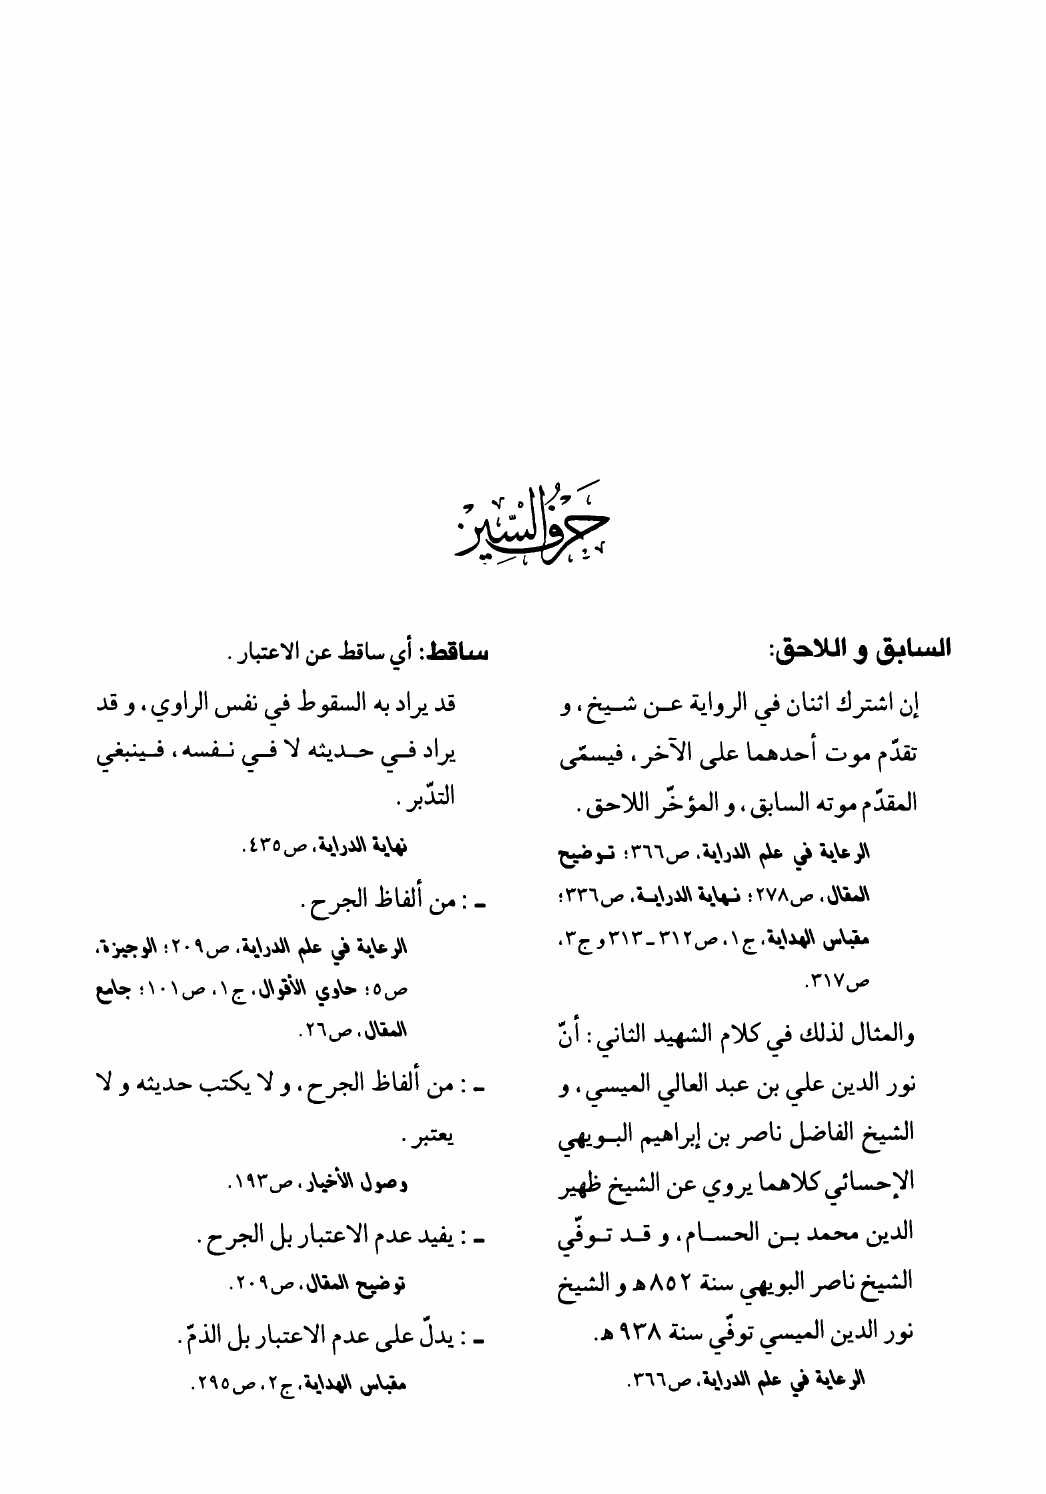 حرف السين
السابق و اللاحق:
إن اشترك اثنان في الرواية عـن شـيخ، و
تقدّم موت أحدهما على الآخر، فيسمّى
المقدّم موته السابق، و المؤخّر اللاحق.
الرعاية في علم الدراية، ص٣٦٦؛ تـوضيح
المقال، ص٢٧٨؛ نـهاية الدرايـة، ص٣٣٦؛
مقباس الهداية، ج١، ص٣١٢ـ٣١٣ و ج٣،
ص٣١٧.
والمثال لذلك في كلام الشهيد الثاني: أنّ
نور الدين علي بن عبد العالي الميسي، و
الشيخ الفاضل ناصر بن إبراهيم البـويهي
الإحسائي كلاهما يروي عن الشيخ ظهير
الدين محمد بـن الحسـام، و قـد تـوفّي
الشيخ ناصر البويهي سنة ٨٥٢ هـ و الشيخ
نور الدين الميسي توفّي سنة ٩٣٨ هـ.
الرعاية في علم الدراية، ص٣٦٦.
ساقط: أي ساقط عن الاعتبار.
قد يراد به السقوط في نفس الراوي، و قد
يراد فـي حـديثه لا فـي نـفسه، فـينبغي
التدّبر.
نهاية الدراية، ص٤٣٥.
ـ : من ألفاظ الجرح.
الرعاية في علم الدراية، ص٢٠٩؛ الوجيزة،
ص٥؛ حاوي الأقوال، ج١، ص١٠١؛ جامع
المقال، ص٢٦.
ـ : من ألفاظ الجرح، و لا يكتب حديثه و لا
يعتبر.
وصول الأخيار، ص١٩٣.
ـ : يفيد عدم الاعتبار بل الجرح.
توضيح المقال، ص٢٠٩.
ـ : يدلّ على عدم الاعتبار بل الذمّ.
مقباس الهداية، ج٢، ص٢٩٥.